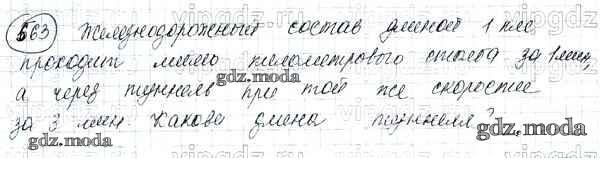 563 Железнодорожный состав длиной 1 км
проходит мимо километрового столба за 1 мин,
а через туннель при той же скорости
за 3 мин. Какова длина туннеля?
gdz.moda
gdz.moda
gdz.moda
vipgdz
vipgdz
vipgdz